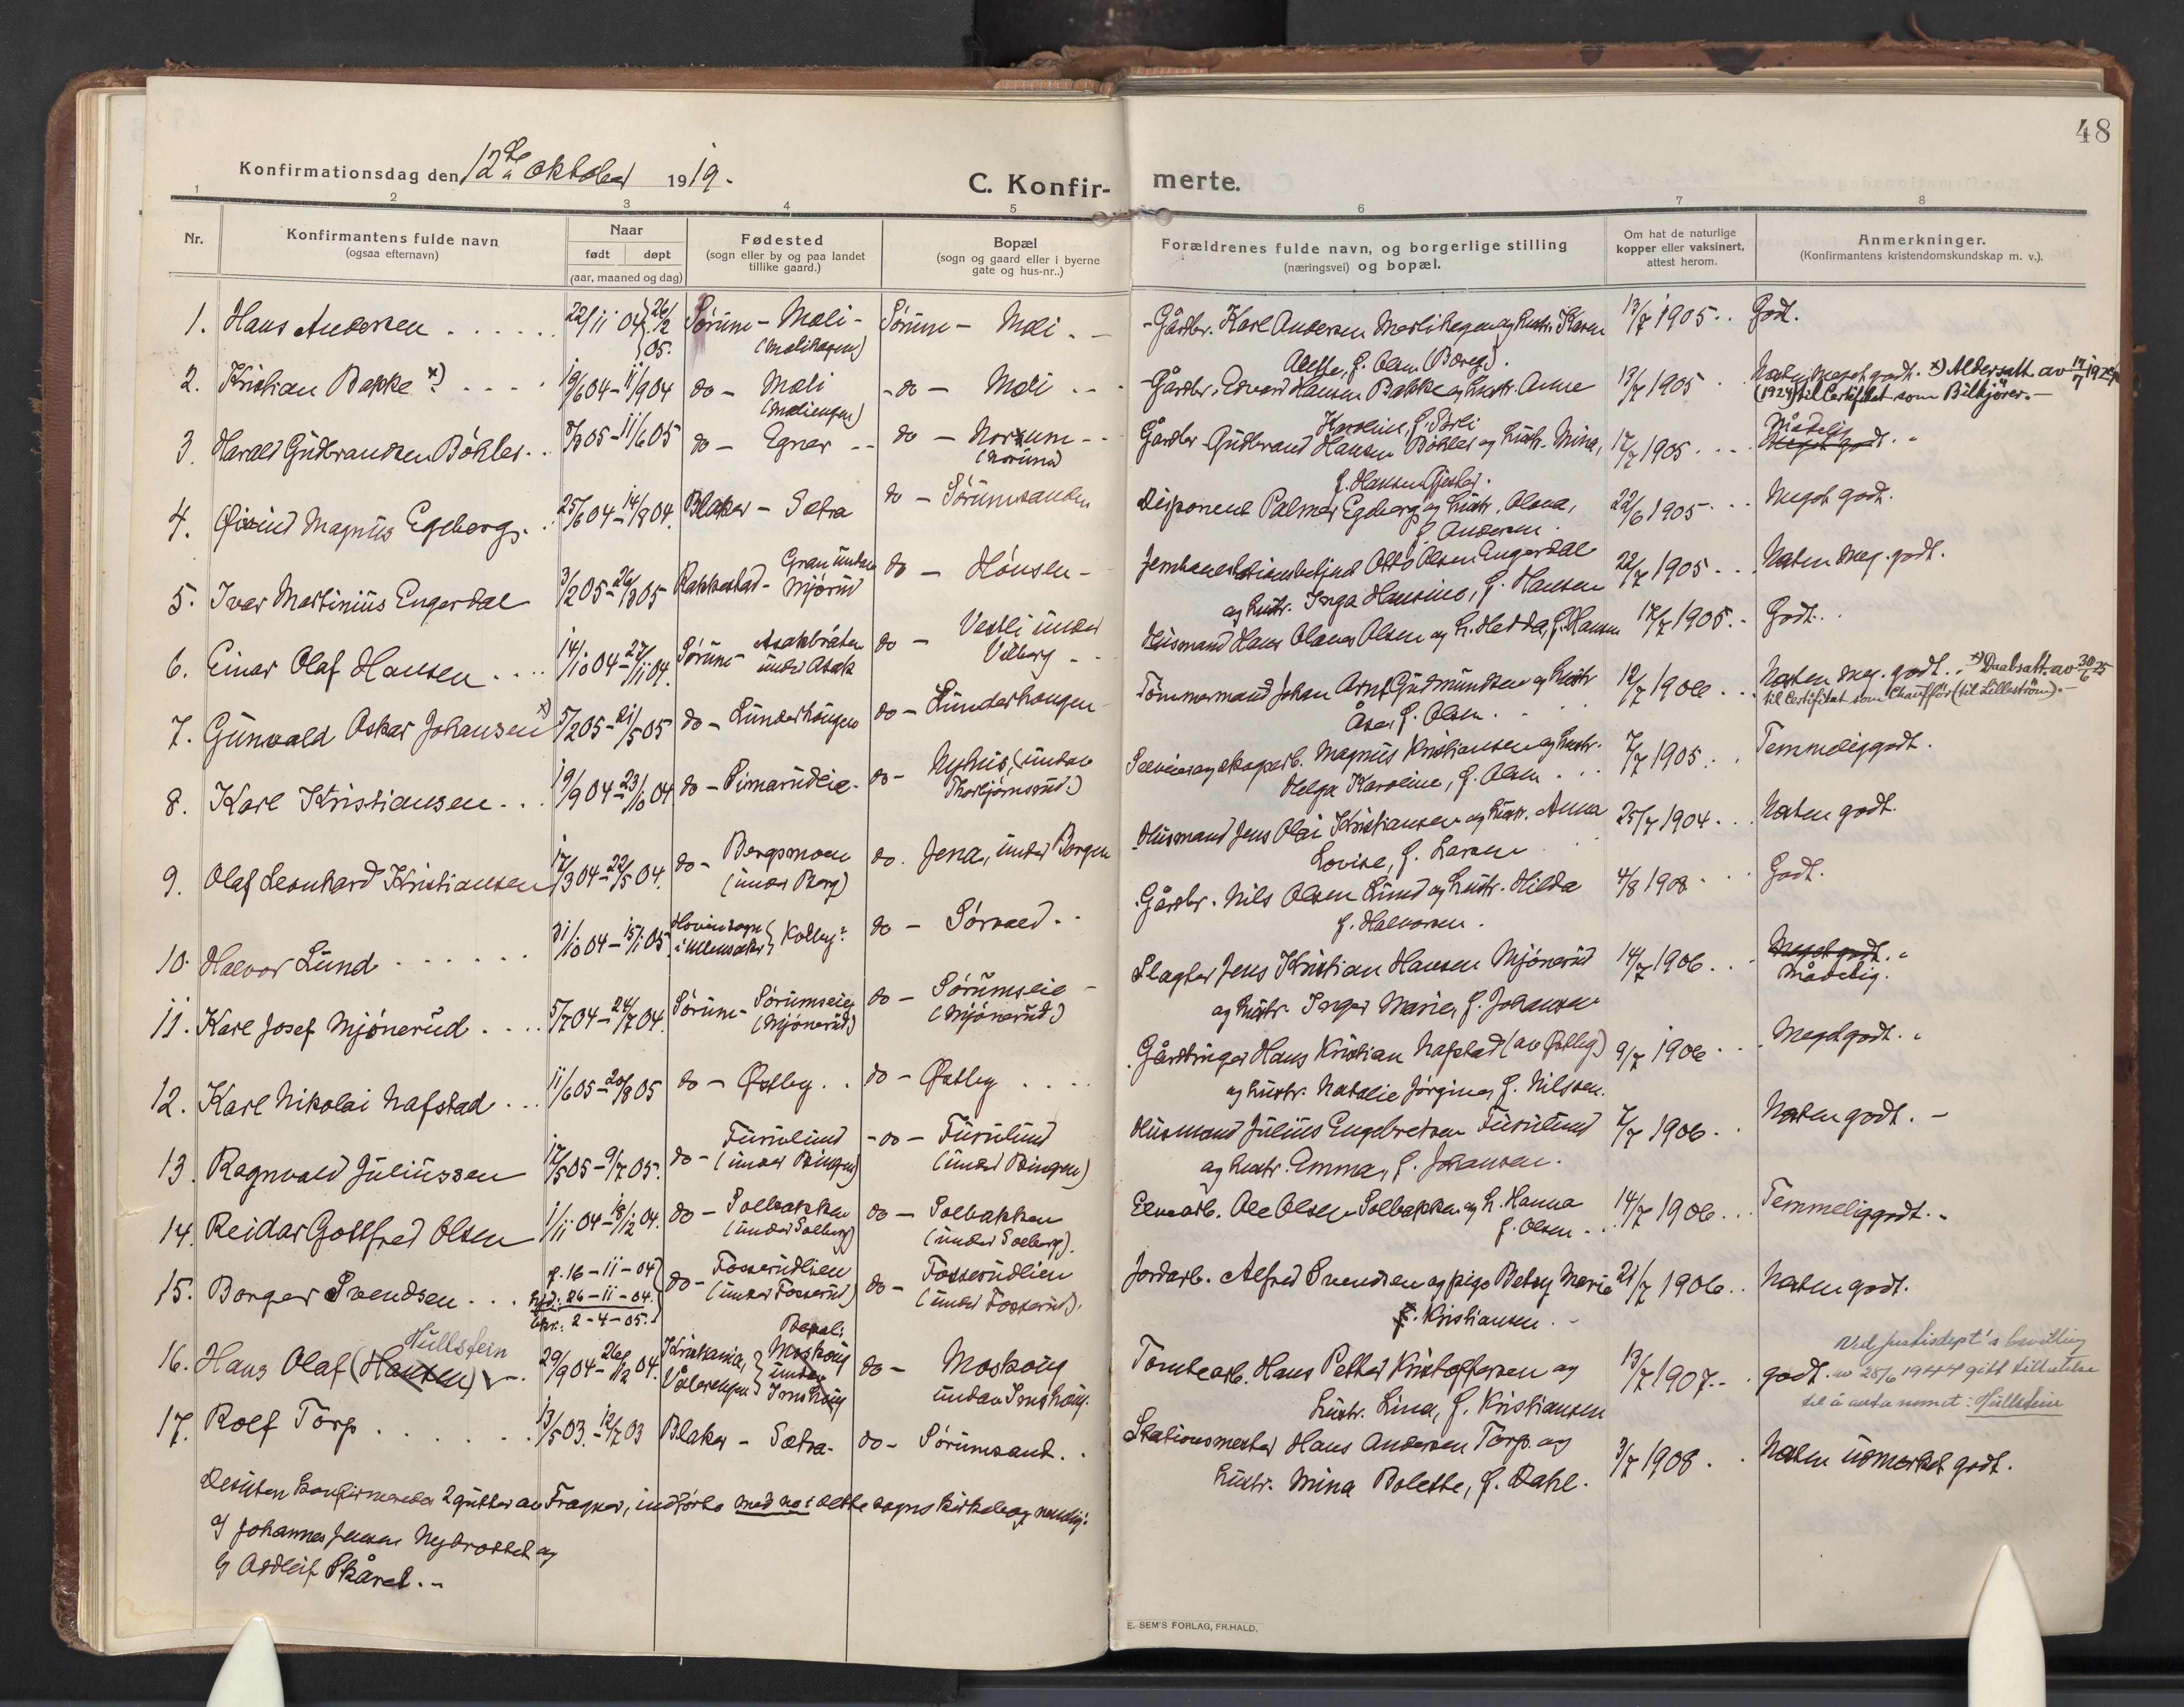 48
Konfirmationsdag den 12te oktober 1919.
C. Konfir- merte.
1 2 3 4 5 6 7 8
Nr.
Konfirmantens fulde navn
(ogsaa efternavn)
Naar
født døpt
(aar, maaned og dag)
Fødested
(sogn eller by og paa landet
tillike gaard.)
Bopæl
(sogn og gaard eller i byerne
gate og hus-nr..)
Forældrenes fulde navn, og borgerlige stilling
(næringsvei) og bopæl.
Om hat de naturlige
kopper eller vaksinert,
attest herom.
Anmerkninger.
(Konfirmantens kristendomskundskap m. v.).
1. Hans Andersen 22/11 04 26/2 05. Sørum - Mæli - (Mælihagen) Sørum - Mæli - Gårdbr. Karl Andersen Mælihagen og hustr. Karen 13/7 1905 Godt.
Adette, f. Olsen (Boreg).
2. Kristian Bakke x) 19/6 04 - 11/9 04 do - Mæli (Mæliengen) do - Mæli Gårdbr. Edvard Hansen Bakke og hustr. Anne 13/7 1905 Næsten meget godt. x) Aldersatt. av 17/7 1924
(1924) til Certifikat som Bilkjører. -
Karoline, f. Dæli
3. Harald Gudbrandsen Bøhler 3/3 05 - 11/6 05 do - Egner - do - Norum (Norum) Gårdbr Gudbrand Hansen Bøhler og hustr. Mina, 17/7 1905 Meget godt. Mådelig
f. Hansen Gjester.
4. Øivind Magnus Egeberg 25/6 04 - 14/8 04. Blaker - Sætra do - Sørumsanden Disponent Palmer Egeberg og hustr. Olova, 22/6 1905 Meget godt.
f. Andersen.
5. Ivar Martinius Engerdal 3/2 05 - 26/3 05 Rakkestad - Gran under Mjørud do - Hønsen - Jernbanestationsbetjent Otto Olsen Engerdal 22/7 1905 Næsten meg. godt.
og hustr. Inga Hansine, f. Hansen
6. Einar Olaf Hansen 14/10 04 - 27/11 04. Sørum - Asakbråten under Asak do - Vestli under Vilberg Husmand Hans Olaves Olsen og h. Hedda, f. Hansen 17/7 1905. Godt.
7. Gunvald Oskar Johansen x) 5/2 05 - 21/5 05 do - Lunderhaugen do - Lunderhaugen Tømmermand Johan Arnt Gudmundsen og hustr. 12/7 1906 Næsten meg. godt. x) Daabsatt. av 30/6 25
til Certifikat som Chauffør (til Lilleström). -
Åse, f. Olsen.
8. Karl Kristiansen 19/9 04 - 23/10 04 do - Rimarudeie do - Nyhus, (under Thorbjørnsrud.) Magnus Kristiansen og hustr. 7/7 1905 Temmelig godt.
Helga Karoline, f. Olsen
9. Olaf Leonhard Kristiansen 17/3 04 - 22/5 04. do - Bergsmoen (under Berg) do. Jena, under Borgen Husmand Jens Olai Kristiansen og hustr. Anna 25/7 1904 Næsten godt.
Lovise, f. Larsen
10. Halvor Lund 31/10 04 - 15/1 05 Hovin sogn i Ullensaker } Kolby: do - Sørvald Gårdbr. Nils Olsen Lund og hustr. Hilda 4/8 1908 Godt.
f. Halvorsen.
11. Karl Josef Mjønerud 5/7 04 - 24/7 04. Sørum - Sørumseie (Mjønerud) do - Sørumseie (Mjønerud) Slagter Jens Kristian Hansen Mjønerud 14/7 1906 Meget godt. Mådelig.
og hustr. Inger Marie, f. Johansen
12. Karl Nikolai Nafstad 11/6 05 - 20/8 05 do - Østby do - Østby Gårdbruger Hans Kristian Nafstad (av Østby) 9/7 1906 Meget godt.
og hustr. Natalie Jørgine, f. Nilsen.
13. Ragnvald Juliussen 17/5 05 - 9/7 05. do - Furulund (under Bingen) - do - Furulund (under Bingen) Husmand Julius Engebretsen Furulund 7/7 1906 Næsten godt. -
og hustr. Emma, f. Johansen.
14. Reidar Gottfred Olsen 1/11 04 - 18/12 04. do - Solbakken (under Solberg) do - Solbakken (under Solberg). Elvearb. Ole Olsen Solbakken og h. Hanna 14/7 1906 Temmelig godt. -
f. Olsen -
15. Borger Svendsen f. 16-11-04 Hjd: 26-11-04. Bekr.: 2-4-05. do - Fosserudlien (under Fosserud) do - Fosserudlien (under Fosserud). Jordarb. Alfred Svendsen og pige Betsy Marie 21/7 1906 Næsten godt.
f. Kristiansen. -
16. Hans Olaf (Hansen) Hullstein 29/9 04 - 26/12 04. Kristiania, Vålerengen Bopæl: Moshaug under Imshaug do - Moshaug under Imshaug. Tomtearb. Hans Petter Kristoffersen og 13/7 1907 godt. Ved justisdept's bevilling
av 28/6 1944 gitt tillatelse
til å anta navnet: Hullstein
hustr. Lina, f. Kristiansen
17. Rolf Torp 13/5 03. - 12/7 03 Blaker - Sætra - do - Sørumsand. Stationsmester Hans Andersen Torp og 3/7 1908 Næsten udmerket godt.
hustr. Mina Bolette, f. Dahl.
Desuten konfirmeredes 2 gutter av Frogner, indførte med no. i dette sogns kirkebog nemlig:
a/ Johannes Jensen Nybrottet og
b/ Oddleif Skåret. -
E. SEM'S FORLAG, FR.HALD.